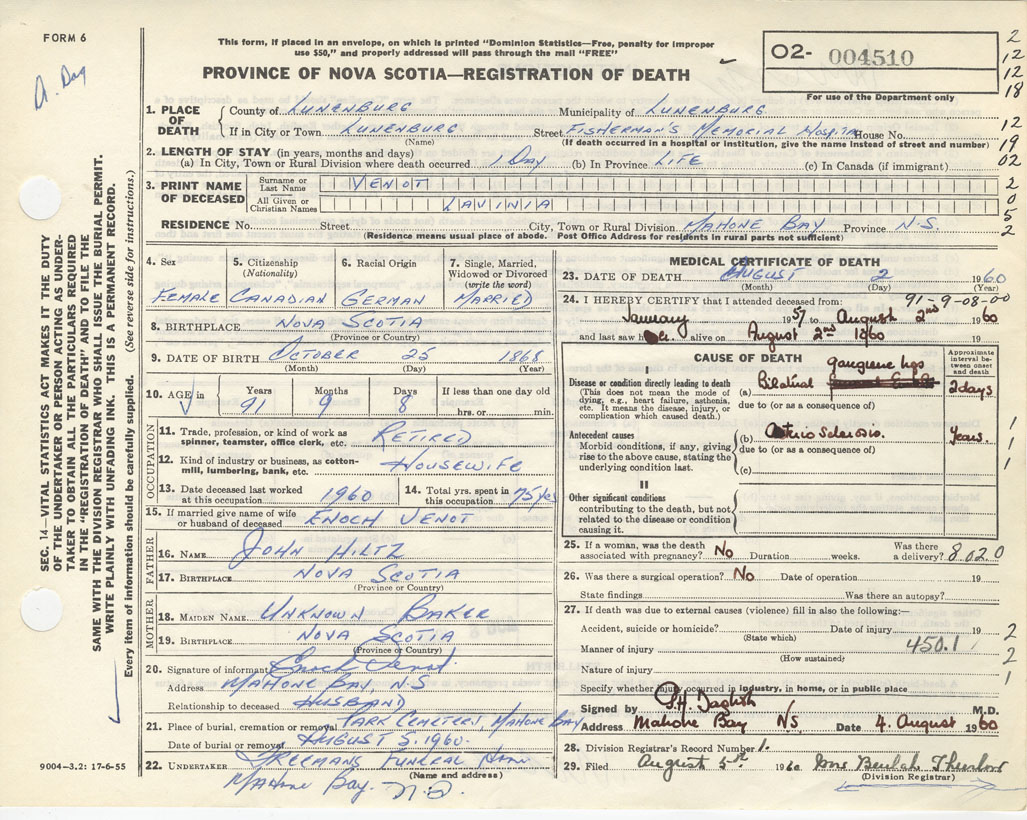 FORM 6
A. Day
This form, if placed in an envelope, on which is printed "Dominion Statistics—Free, penalty for improper
use $50," and properly addressed will pass through the mail "FREE"
PROVINCE OF NOVA SCOTIA—REGISTRATION OF DEATH
O2- 004510
For use of the Department only
2
12
12
18
12
19
02
2
0
5
2
1. PLACE OF DEATH
County of LUNENBURG Municipality of LUNENBURG
If in City or Town LUNENBURG Street FISHERMAN'S MEMORIAL HOSPITAL House No.
(Name) (If death occurred in a hospital or institution, give the name instead of street and number)
2. LENGTH OF STAY (in years, months and days)
(a) In City, Town or Rural Division where death occurred 1 DAY (b) In Province LIFE (c) In Canada (if immigrant)
3. PRINT NAME OF DECEASED
Surname or Last Name VENOT
All Given or Christian Names LAVINIA
RESIDENCE No. Street City, Town or Rural Division MAHONE BAY Province N.S.
(Residence means usual place of abode. Post Office Address for residents in rural parts not sufficient)
SEC. 14—VITAL STATISTICS ACT MAKES IT THE DUTY
OF THE UNDERTAKER OR PERSON ACTING AS UNDER-
TAKER TO OBTAIN ALL THE PARTICULARS REQUIRED
IN THE "REGISTRATION OF DEATH" AND FILE THE
SAME WITH THE DIVISION REGISTRAR WHO SHALL ISSUE THE BURIAL PERMIT.
WRITE PLAINLY WITH UNFADING INK. THIS IS A PERMANENT RECORD.
Every item of information should be carefully supplied. (See reverse side for instructions.)
4. Sex 5. Citizenship (Nationality) 6. Racial Origin 7. Single, Married, Widowed or Divorced (write the word)
FEMALE CANADIAN GERMAN MARRIED
8. BIRTHPLACE NOVA SCOTIA
(Province or Country)
9. DATE OF BIRTH OCTOBER 25 1868
(Month) (Day) (Year)
10. AGE in Years Months Days If less than one day old
91 9 8 hrs. or min.
OCCUPATION
11. Trade, profession, or kind of work as
spinner, teamster, office clerk, etc. RETIRED
12. Kind of industry or business, as cotton-
mill, lumbering, bank, etc. HOUSEWIFE
13. Date deceased last worked
at this occupation 1960
14. Total yrs. spent in
this occupation 75 yrs
15. If married give name of wife
or husband of deceased ENOCH VENOT
FATHER
16. NAME JOHN HILTZ
17. BIRTHPLACE NOVA SCOTIA
(Province or Country)
MOTHER
18. MAIDEN NAME UNKNOWN BAKER
19. BIRTHPLACE NOVA SCOTIA
(Province or Country)
20. Signature of informant Enoch Venot
Address MAHONE BAY, N.S
Relationship to deceased HUSBAND
21. Place of burial, cremation or removal PARK CEMETERY, MAHONE BAY
Date of burial or removal AUGUST 5, 1960.
22. UNDERTAKER FREEMANS FUNERAL HOME
(Name and address)
MAHONE BAY. N.S.
9004—3.2: 17-6-55
MEDICAL CERTIFICATE OF DEATH
23. DATE OF DEATH AUGUST 2 1960
(Month) (Day) (Year)
24. I HEREBY CERTIFY that I attended deceased from: 91-9-08-00
January 1957 to August 2nd 1960
and last saw her alive on August 2nd 1960 19
CAUSE OF DEATH
Approximate interval between onset and death
I
Disease or condition directly leading to death
(This does not mean the mode of dying, e.g., heart failure, asthenia, etc. It means the disease, injury, or complication which caused death.)
(a) Bilateral gangrene legs 2 days
due to (or as a consequence of)
Antecedent causes
Morbid conditions, if any, giving rise to the above cause, stating the underlying condition last.
(b) Arteriosclerosis. years.
due to (or as a consequence of)
(c)
1
1
1
II
Other significant conditions
contributing to the death, but not related to the disease or condition causing it.
25. If a woman, was the death
associated with pregnancy? No Duration weeks. Was there a delivery? 8020
26. Was there a surgical operation? No. Date of operation 19
State findings Was there an autopsy?
27. If death was due to external causes (violence) fill in also the following:—
Accident, suicide or homicide? Date of injury 19
(State which)
Manner of injury 450.1
(How sustained)
Nature of injury
2
2
1
Specify whether injury occurred in industry, in home, or in public place
Signed by M.D.
Address Mahone Bay NS Date 4. August 1960
28. Division Registrar's Record Number 1.
29. Filed August 5th 1960 Mrs Beulah
(Division Registrar)